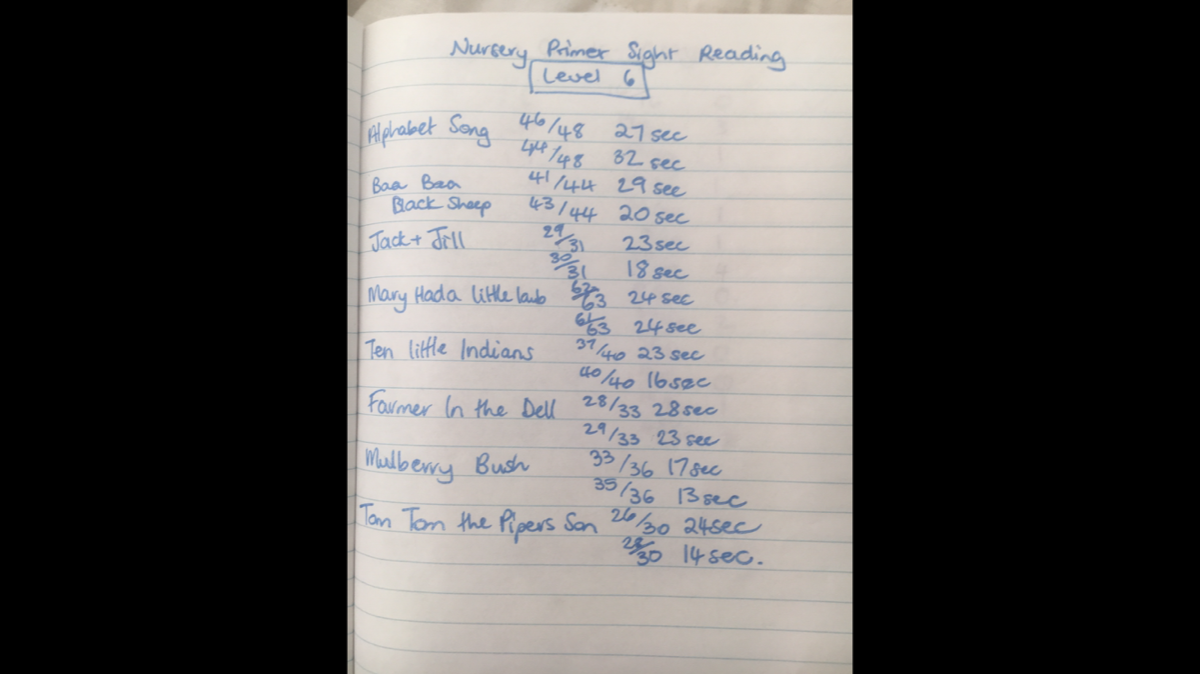 Nursery Primer Sight Reading
Level 6
Alphabet Song 46/48 27 sec
44/48 32 sec
Baa Baa 41/44 29 sec
Black Sheep 43/44 20 sec
Jack + Jill 29/31 23 sec
30/31 18 sec
Mary Had a little lamb 62/63 24 sec
61/63 24 sec
Ten little Indians 37/40 23 sec
40/40 16 sec
Farmer In the Dell 28/33 28 sec
29/33 23 sec
Mulberry Bush 33/36 17 sec
35/36 13 sec
Tom Tom the Pipers Son 26/30 24 sec
28/30 14 sec.